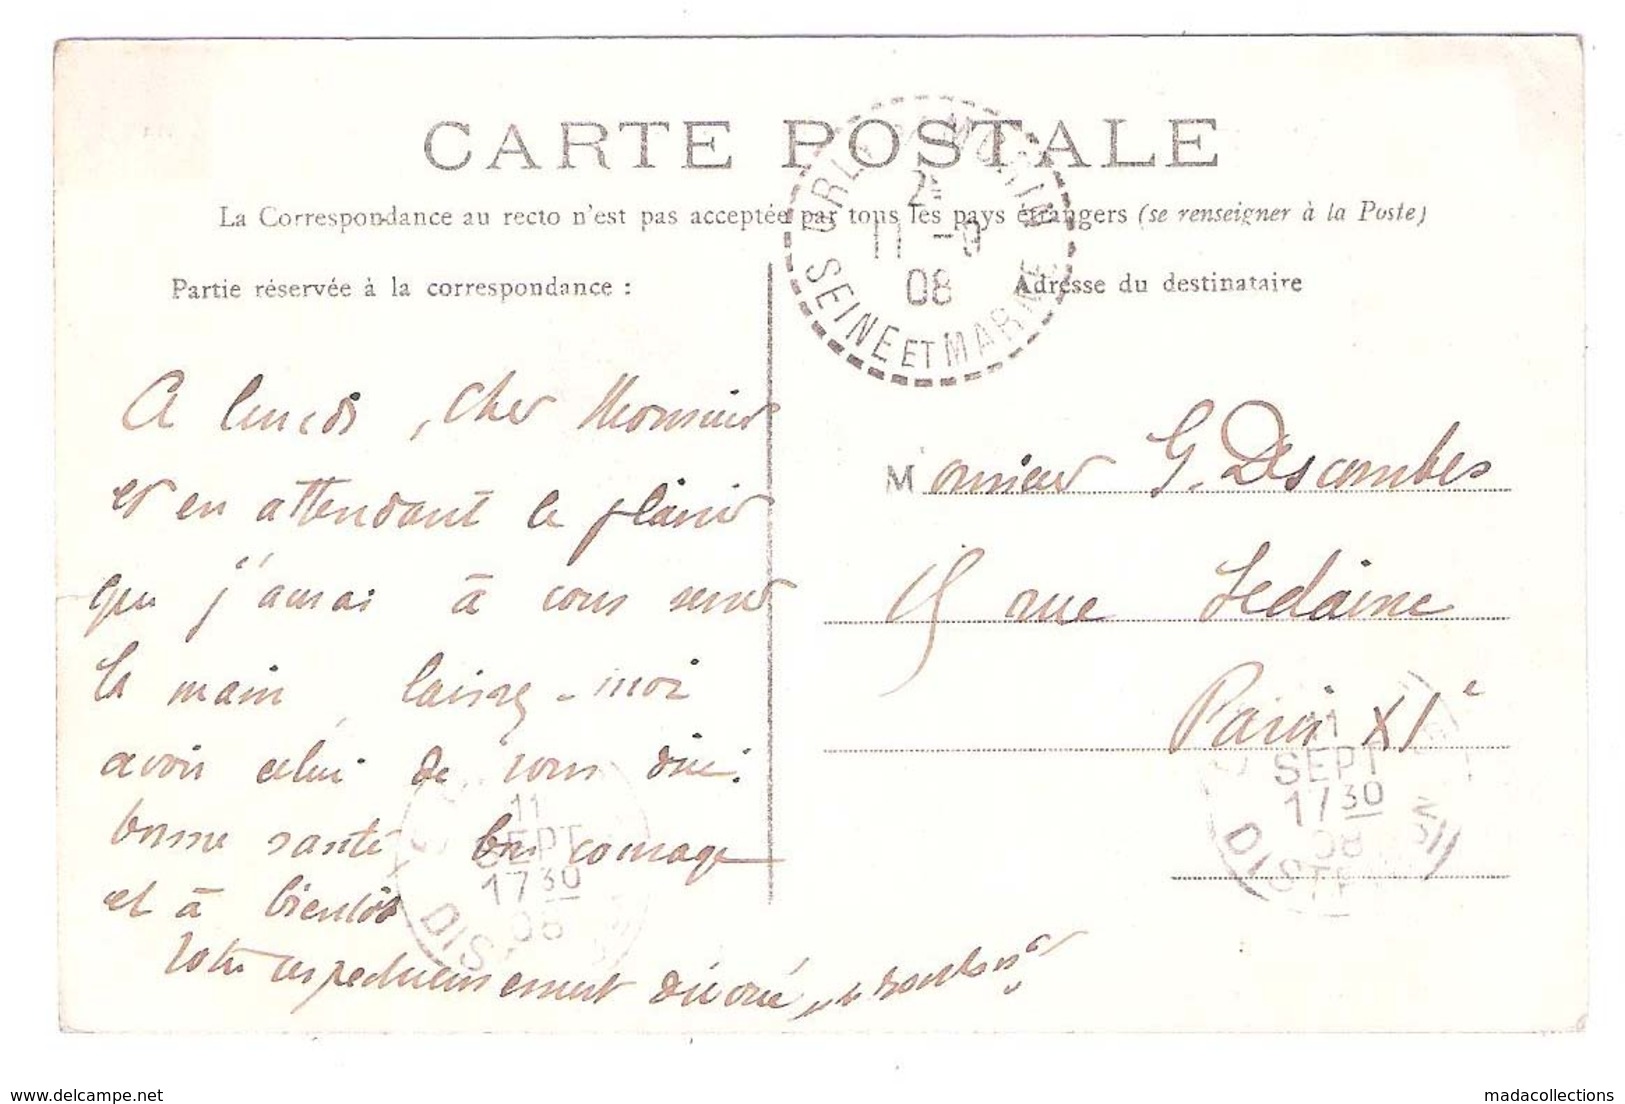 CARTE POSTALE
La Correspondance au recto n'est pas acceptée par tous les pays étrangers (se renseigner à la Poste)
Partie réservée à la correspondance :
Adresse du destinataire
2e
11 -9
08
SEINE ET MARNE
A lundi, Cher Monsieur
et en attendant le plaisir
que j'aurai à vous serrer
la main laissez-moi
avoir celui de vous dire:
bonne santé bon courage
et à bientôt
Votre respectueusement dévoué
Monsieur G. Descombes
15 rue Sedaine
Paris XIe
11
SEPT
17 30
08
DIS
11
SEPT
17 30
08
DIS
delcampe.net
madacollections